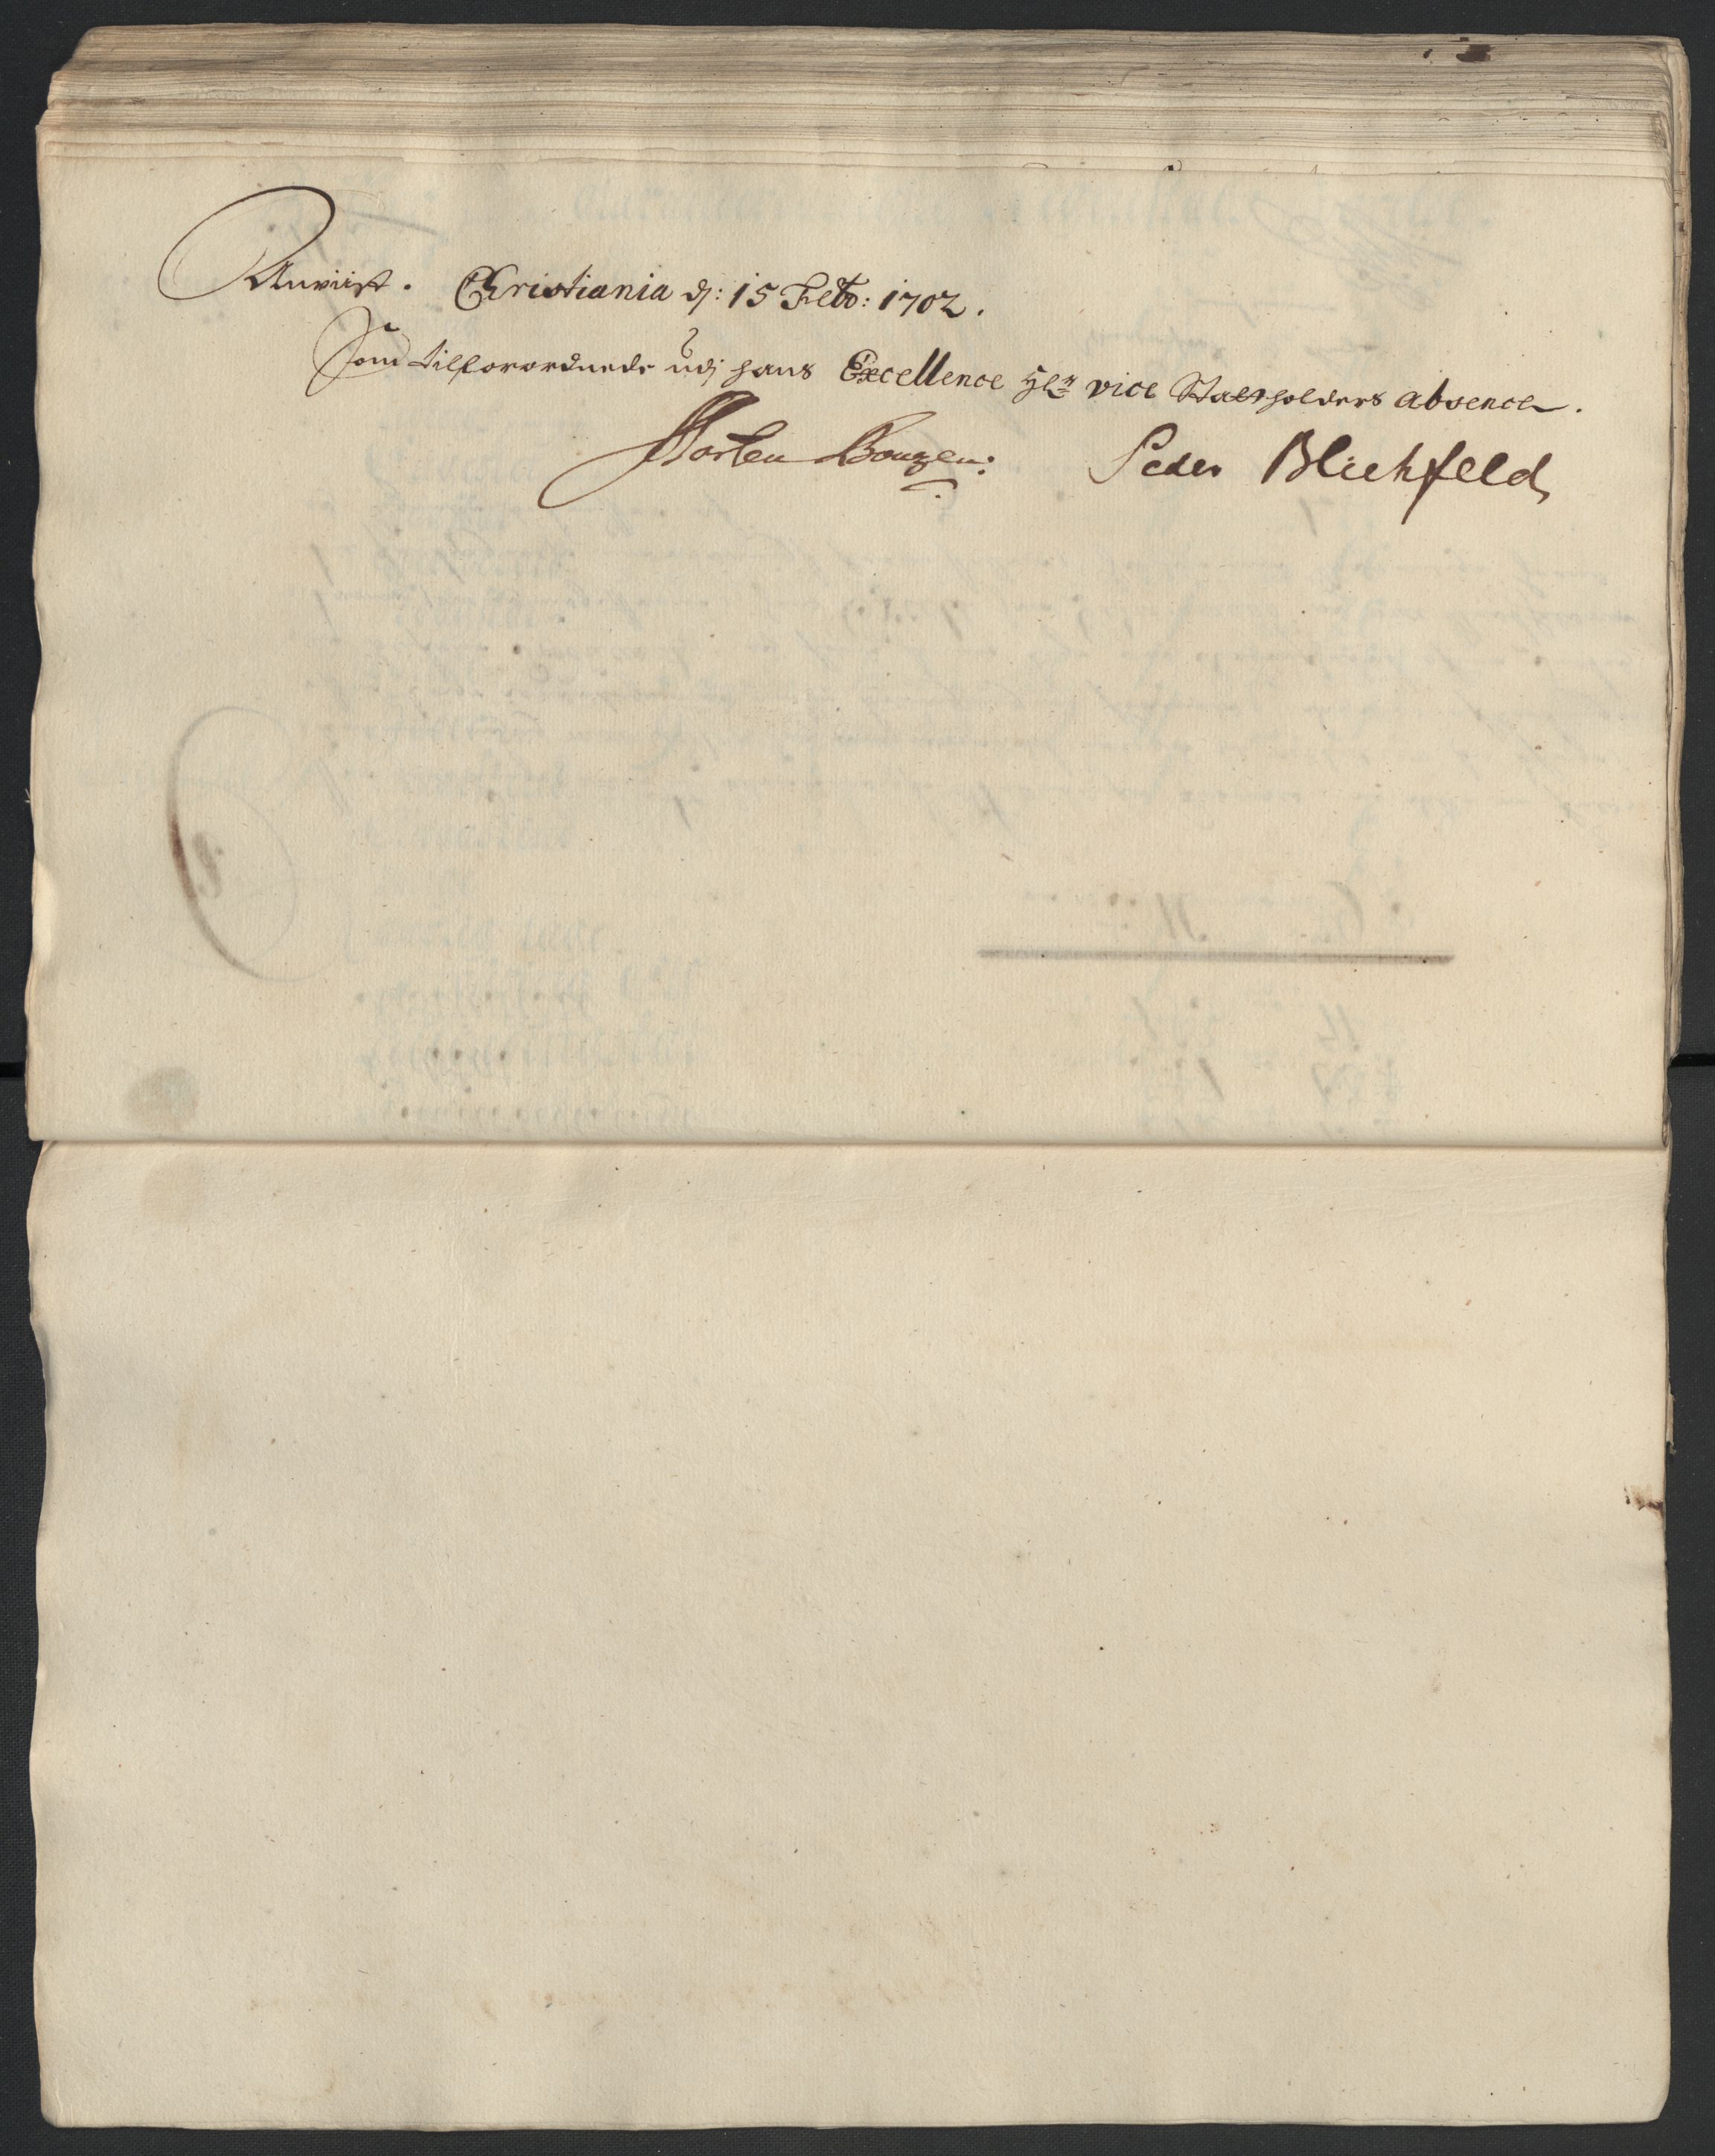 Anviist. Christiania dj: 15 Febr: 1702.
Som tilforordnede udj hans Excellence Hr: vice Statholders absence.
Morten Peder Blichfeld